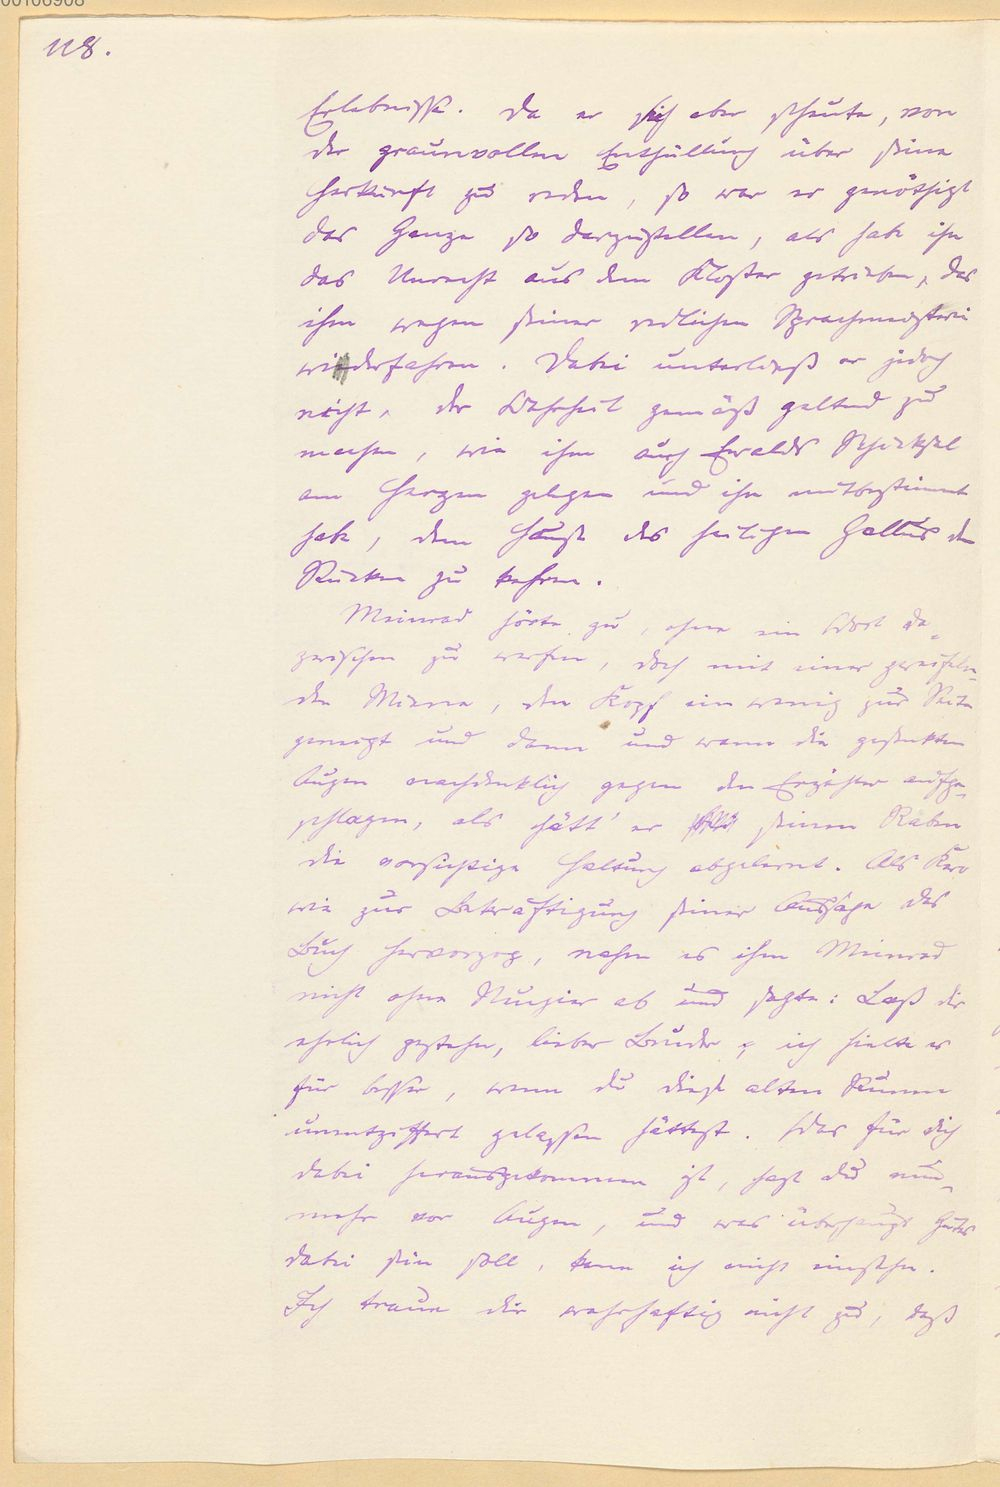 00106908
118.
Erlebnisse. Da er sich aber scheute, von
der grauenvollen Enthüllung über seine
Herkunft zu reden, so war er genöthigt
das Ganze so darzustellen, als habe ihn
das Unrecht aus dem Kloster getrieben, das
ihm wegen seiner redlichen Sprachmeisterei
wiederfahren. Dabei unterließ er jedoch
nicht, der Wahrheit gemäß geltend zu
machen, wie ihm auch Ewalds Schicksal
am Herzen gelegen und ihn mitbestimmt
habe, dem Hause des heiligen Gallus den
Rücken zu kehren.
Meinrad hörte zu, ohne ein Wort da-
zwischen zu werfen, doch mit einer zweifeln-
den Miene, den Kopf ein wenig zur Seite
geneigt und dann und wann die gesenkten
Augen nachdenklich gegen den Erzähler aufge-
schlagen, als hätt' er seinen Raben
die vorsichtige Haltung abgelernt. Als Kero
wie zur Bekräftigung seiner Aussage das
Buch hervorzog, nahm es ihm Meinrad
nicht ohne Neugier ab und sagte: Laß dir
ehrlich gestehn, lieber Bruder, ich hielte es
für besser, wenn du diese alten Runen
unentziffert gelassen hättest. Was für dich
dabei herausgekommen ist, hast du nun-
mehr vor Augen, und was überhaupt Gutes
dabei sein soll, kann ich nicht einsehn.
Ich traue dir wahrhaftig nicht zu, daß